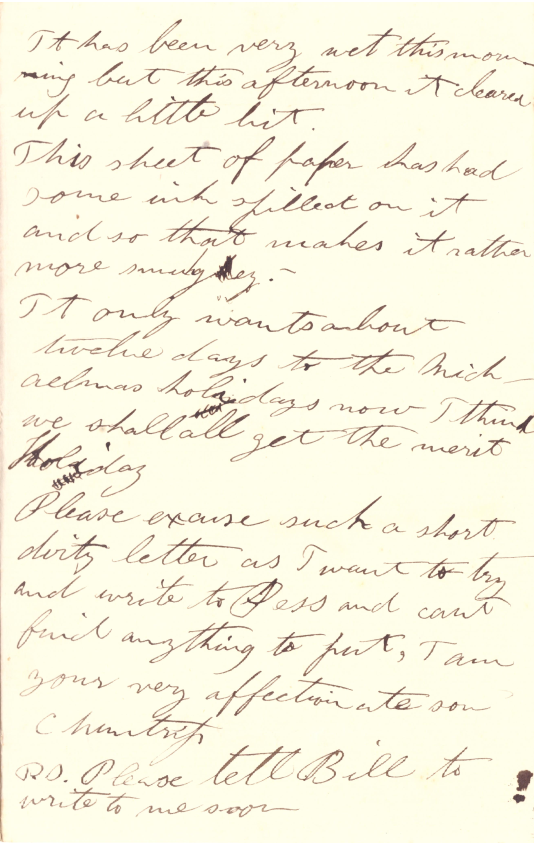 It has been very wet this mor-
ning but this afternoon it cleared
up a little bit.
This sheet of paper has had
some ink spilled on it
and so that makes it rather
more smudgey.-
It only wants about
twelve days to the Mich-
aelmas holidays now I think
we shall all get the merit
Holiday
Please excuse such a short
dirty letter as I want to try
and write to Bess and cant
find anything to put, I am
your very affectionate son
C Huntrip
P.S. Please tell Bill to
write to me soon